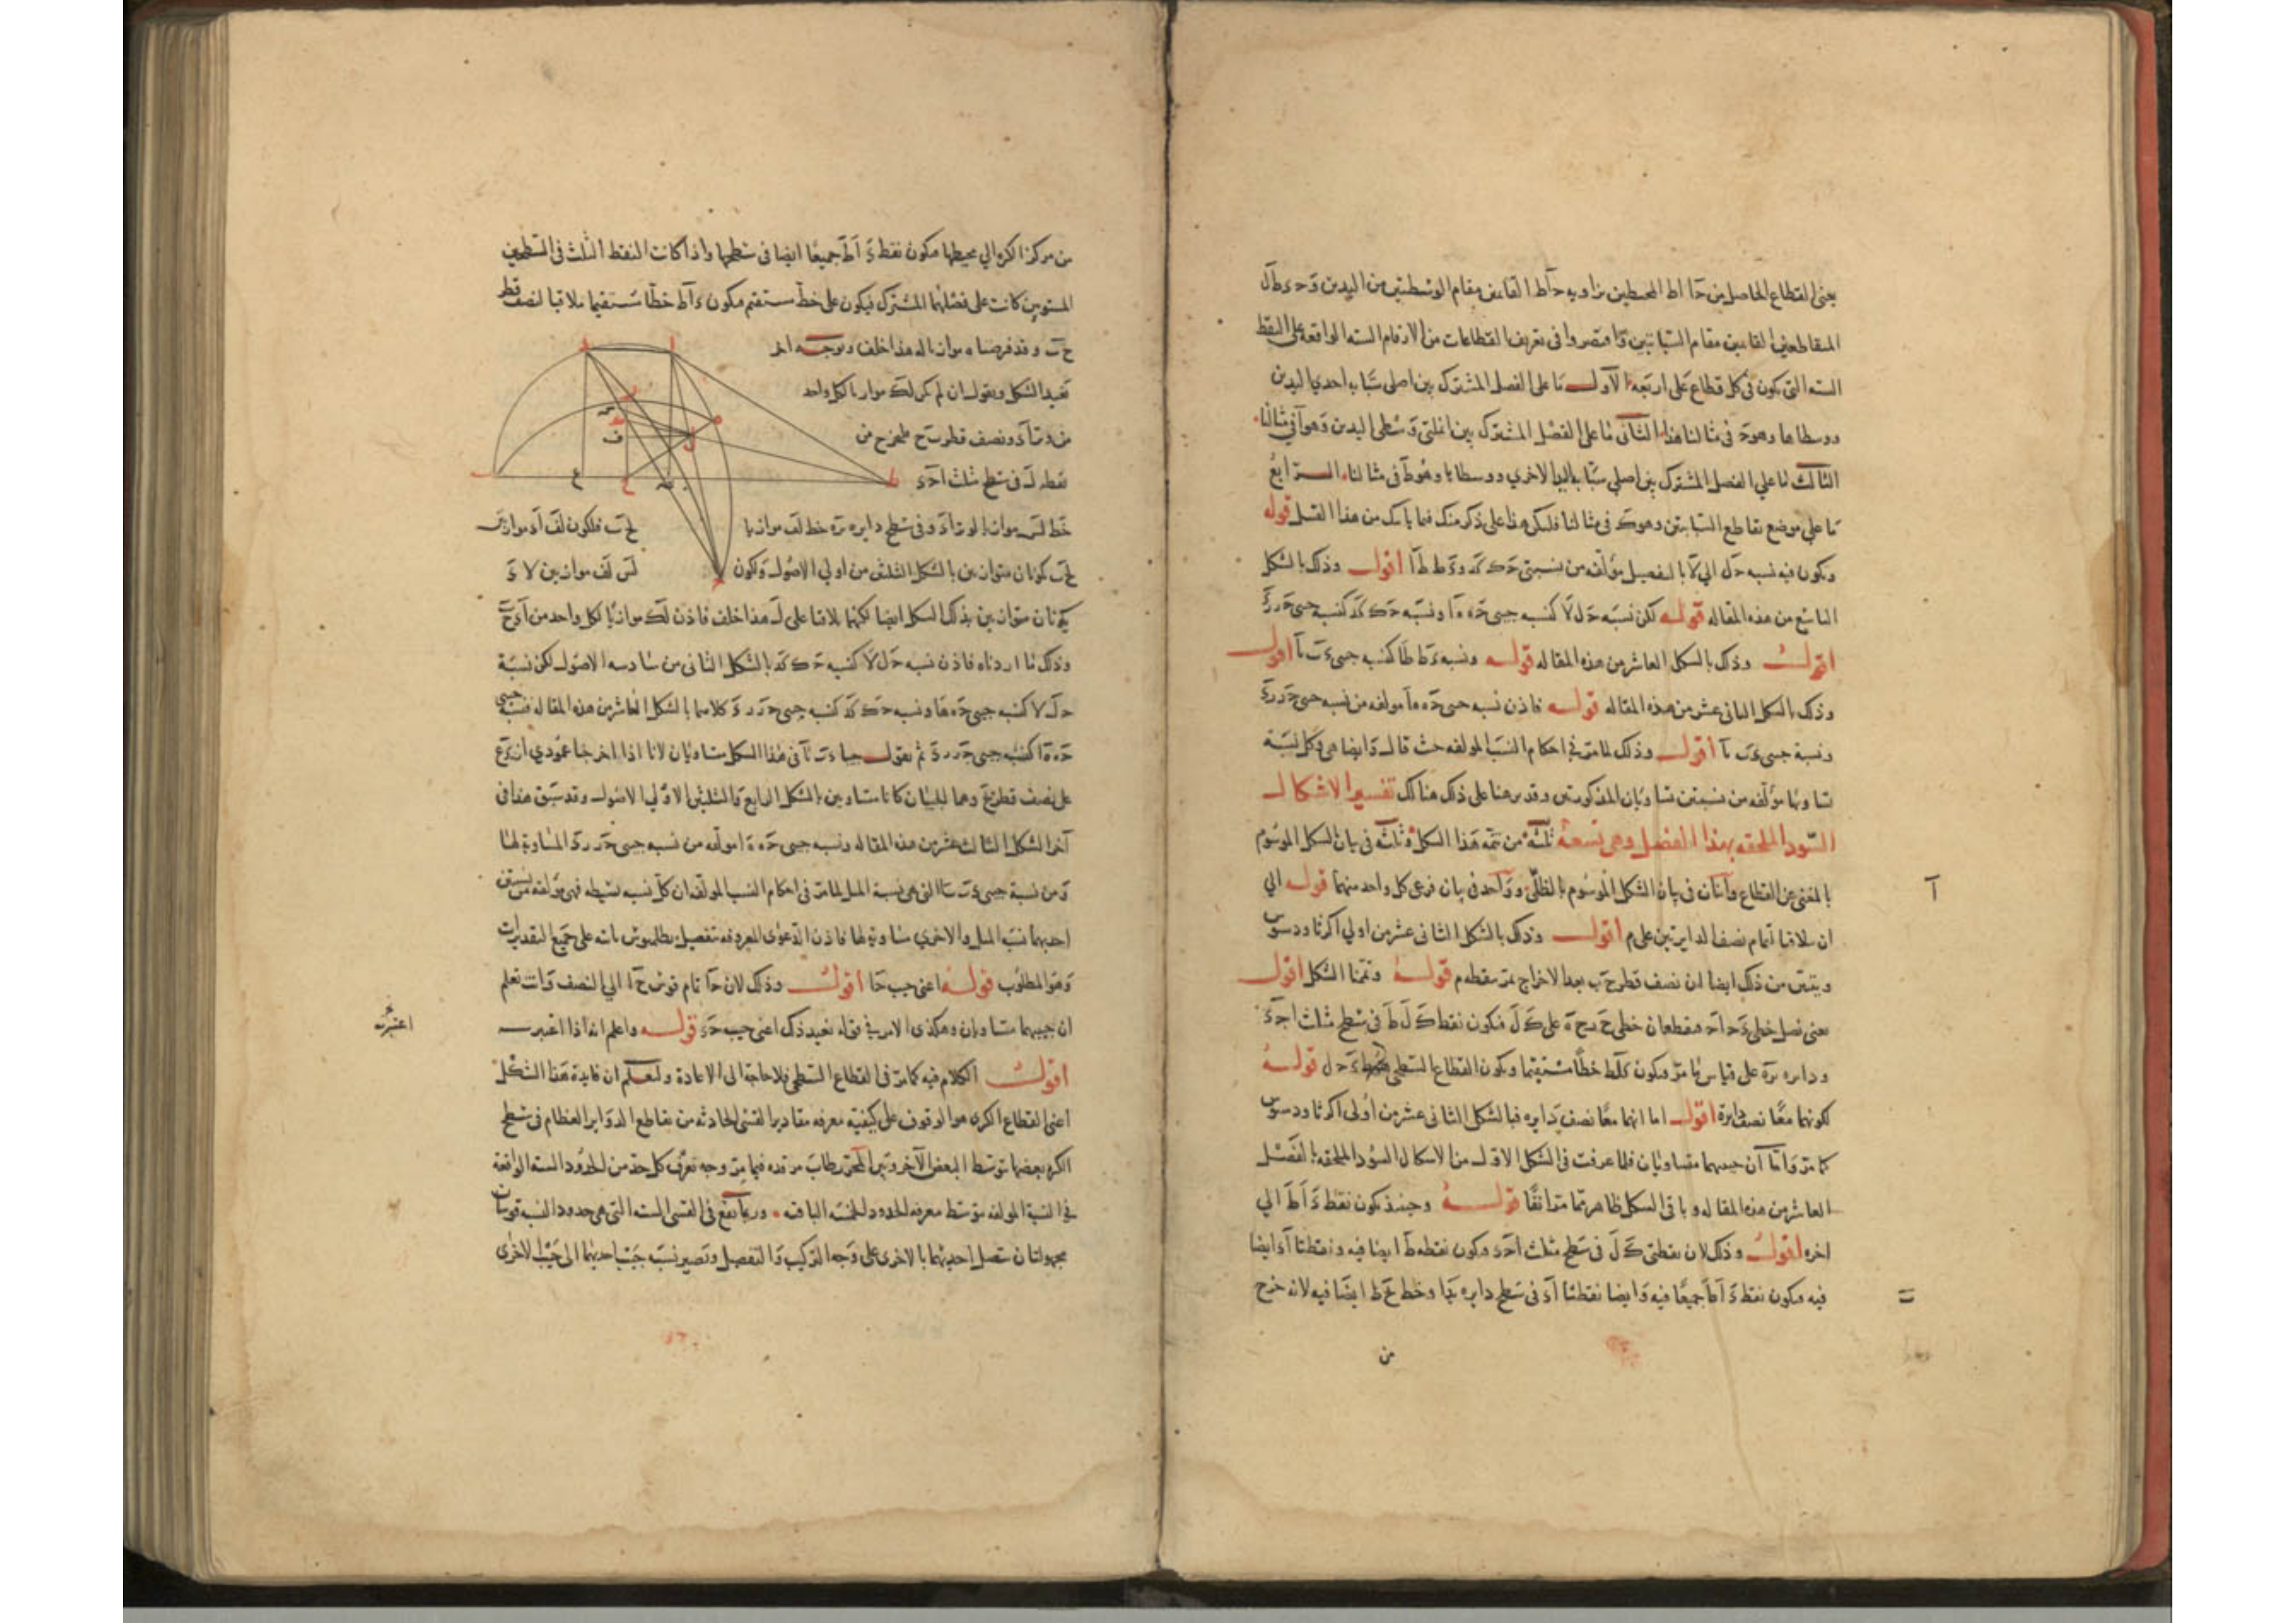 يعني القطاع الحاصل من حا اط المحيطين بزاوية حاط القائمين مقام الوسطيين من اليدين و حء طال
المتقاطعين القائمين مقام السبابتين واقتصروا في تعريف القطاعات من الارقام الستة الواقعة على النقط
الستة التي تكون في كل قطاع على اربعة الأول ما على الفصل المشترك بين اصلي سبابة احدى اليدين
ووسطاها وهو ح في مثالنا هذا الثاني ما على الفصل المشترك بين انملتي وسطى اليدين وهو ا في مثالنا
الثالث ما على الفصل المشترك بين اصلي سبابة اليد الاخرى ووسطاها وهو ط في مثالنا الرابع
ما على موضع تقاطع السبابتين وهو ك في مثالنا فليكن هذا على ذكر منك فيما يأتيك من هذا القبيل قوله
ويكون فيه نسبة حل الى لا بالتفصيل مؤلفة من نسبتي حك كء و ءط طا اقول وذلك بالشكل
التاسع من هذه المقالة قوله لكن نسبة حل لا كنسبة جيبي حه ه‍ا ونسبة حك كء كنسبة جيبي حر رء
اقول وذلك بالشكل العاشر من هذه المقالة قوله ونسبة ءط طا كنسبة جيبي ءب با اقول
وذلك بالشكل الثاني عشر من هذه المقالة قوله فاذن نسبة جيبي حه ه‍ا مولفة من نسبة جيبي حر رء
ونسبة جيبي ءب با اقول وذلك لما مر في احكام النسب المولفة حيث قال وايضا هي وكل نسبة
تساويها مؤلفة من نسبتين تساويان المذكورتين وقد برهنا على ذلك هنالك تفسير الاشكال
السود الملحقة بهذا الفصل وهي تسعة ثلثة من تتمة هذا الشكل وثلثة في بيان الشكل الموسوم
بالمغني عن القطاع واثنان في بيان الشكل الموسوم بالظلي وواحد في بيان فرعي كل واحد منهما قوله الى
ان يلاقيا تمام نصف الدايرتين على م اقول وذلك بالشكل الثاني عشر من اولى اكر ثاودسيوس
ويتبين من ذلك ايضا ان نصف قطر ح ب بعد الاخراج يمر بنقطة م قوله وتممنا الشكل اقول
يعني نصل خطي ءح اح فيقطعان خطي ح ر ح ه على ك ل فيكون نقط ك ل ط في سطح مثلث احء
ودايرة ره على قياس ما مر ويكون كلط خطا مستقيما ويكون القطاع السطحي ء ح ل قوله
لكونهما معا نصف دايرة اقول اما انهما معا نصف دايرة فبالشكل الثاني عشر من اولى اكر ثاودسيوس
كما مر واما ان جيبيهما متساويان فلما عرفت في الشكل الاول من الاشكال السود الملحقة بالفصل
العاشر من هذه المقالة وباقي الشكل ظاهر مما مر انفا قوله وحينئذ يكون نقط ء ا ط الى
اخره اقول وذلك لان نقطتي ك ل في سطح مثلث احء ويكون نقطة ط ايضا فيه ونقطتا ا ء ايضا
فيه فيكون نقط ء ا ط جميعا فيه وايضا نقطتا ا ء في سطح دايرة با وخط ح ط ايضا فيه لانه خرج
من
من مركز الكرة الى محيطها فيكون نقط ء ا ط جميعا ايضا في سطحها واذا كانت النقط الثلث في السطحين
المستويين كانت على فصلهما المشترك فيكون على خط مستقيم فيكون ء ا ط خطا مستقيما ملاقيا لنصف قطر
ح ب وقد فرضناه موازيا له هذا خلف وبوجه اخر
نعيد الشكل ونقول ان لم يكن لك موازيا لكل واحد
من وتر اء ونصف قطر ب ح فليخرج من
نقطة ل في سطح مثلث احء
خط لس موازيا لوتر اء وفي سطح دايرة ره خط لف موازيا
لح ب فلكون لف اء موازيي
ح ب يكونان متوازيين بالشكل الثلثين من اولى الاصول ولكون
لس لف موازيين لاء
يكونان متوازيين بذلك الشكل ايضا لكنهما تلاقيا على ل هذا خلف فاذن لك موازيا لكل واحد من اء ح ب
وذلك ما اردناه فاذن نسبة حل لا كنسبة حك كء بالشكل الثاني من سادسة الاصول لكن نسبة
حل لا كنسبة جيبي حه ها ونسبة حك كء كنسبة جيبي حر رء كلاهما بالشكل العاشر من هذه المقالة فنسبة جيبي
حه ه‍ا كنسبة جيبي حر رء ثم نقول جيبا ءب با في هذا الشكل متساويان لانا اذا اخرجنا عمودي ان ءع
على نصف قطر ح وهما الجيبان كانا متساويين بالشكل الرابع والثلثين لاولى الاصول وقد سبق هذا في
اخر الشكل الثالث عشر من هذه المقالة ونسبة جيبي حه ه‍ا مولفة من نسبة جيبي حر رء المساوية لها
ومن نسبة جيبي ءب با التي هي نسبة المثل لما مر في احكام النسب المولفة ان كل نسبة بسيطة فهي مؤلفة من نسبتين
احديهما نسبة المثل والاخرى مساوية لها فاذن الدعوى المعروفة بتفصيل بطلميوس ثابتة على جميع التقديرات
وهو المطلوب قوله اعني جيب حا اقول وذلك لان حا تمام قوس ح ا الى النصف وانت تعلم
ان جيبيهما متساويان وهكذا الامر في قوله بعيد ذلك اعني جيب حء قوله واعلم انه اذا اعتبر
اعتبرت
اقول الكلام فيه كما مر في القطاع السطحي فلا حاجة الى الاعادة وليعلم ان فايدة هذا الشكل
اعني القطاع الكري هو الوقوف على كيفية معرفة مقادير القسي الحادثة من تقاطع الدواير العظام في سطح
الكرة بعضها بتوسط البعض الآخر وبين المحرر طاب مرقده فيما مر وجه تعرف كل حد من الحدود الستة الواقعة
في النسبة المولفة بتوسط معرفة الحدود الخمسة الباقية وربما يقع في القسي الستة التي هي حدود النسبة قوسان
مجهولتان تتصل احديهما بالاخرى على وجه التركيب والتفصيل وتصير نسبة جيب احديهما الى جيب الاخرى